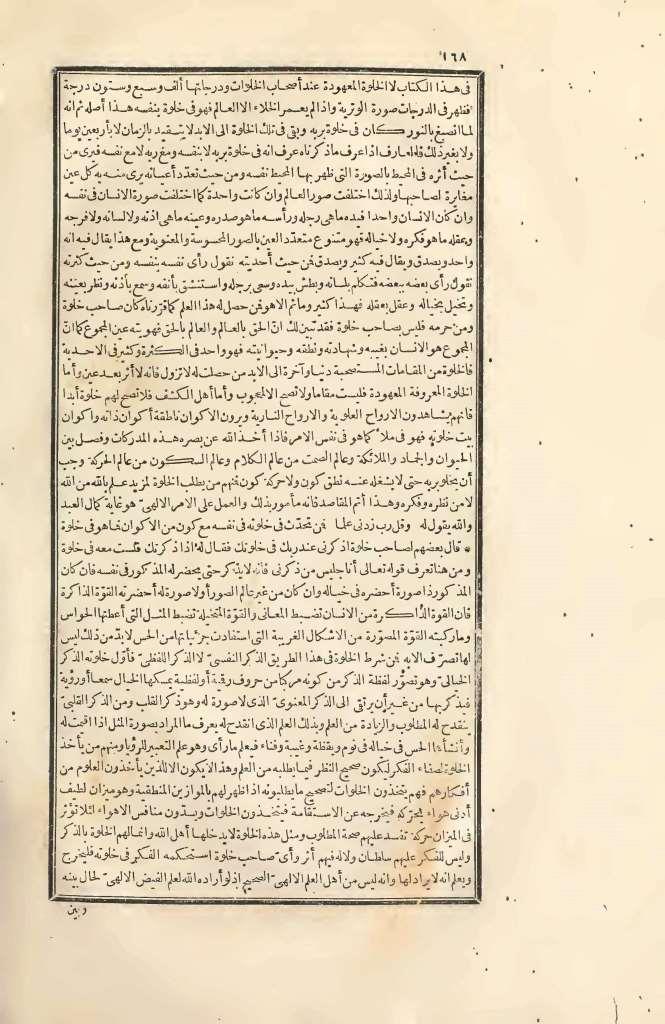 ١٦٨
فى هذا الكتاب لا الخلوة المعهودة عند أصحاب الخلوات ودرجاتها ألف وسبع وستون درجة
فظهر فى الدرجات صورة الوترية واذا لم يعمر الخلاء الا العالم فهو فى خلوة بنفسه هذا أصله ثم انه
لما انصبغ بالنور كان فى خلوة بربه وبقى فى تلك الخلوة الى الابد لا يتقيد بالزمان لا بأربعين يوما
ولا بغير ذلك فالعارف اذا عرف ما ذكرناه عرف انه فى خلوة بربه لا بنفسه ومع ربه لا مع نفسه فيرى من
حيث أثره فى المحيط بالصورة التى ظهر بها المحيط نفسه ومن حيث تعدّد أعيانه يرى منه به كل عين
مغايرة لصاحبها ولذلك اختلفت صور العالم وان كانت واحدة كما اختلفت صورة الانسان فى نفسه
وان كان الانسان واحدا فيده ما هى رجله ورأسه ما هو صدره وعينه ما هى اذنه ولا لسانه ولا فرجه
وعقله ما هو فكره ولا خياله فهو متنوع متعدّد العين بالصور المحسوسة والمعنوية ومع هذا يقال فيه انه
واحد ويصدق ويقال فيه كثير ويصدق فمن حيث أحديته نقول رأى نفسه بنفسه ومن حيث كثرته
نقول رأى بعضه ببعضه فتكلم بلسانه وبطش بيده وسعى برجله واستنشق بأنفه وسمع بأذنه ونظر بعينه
وتخيل بخياله وعقل بعقله فهذا كثير وما ثم الا هو فمن حصل له هذا العلم كما قرّرناه كان صاحب خلوة
ومن حرمه فليس بصاحب خلوة فقد تبين لك انّ الحق بالعالم والعالم بالحق فهويته عين المجموع كما انّ
المجموع هو الانسان بغيبه وشهادته ونطقه وحيوانيته فهو واحد فى الكثرة وكثير فى الاحدية
فالخلوة من المقامات المستصحبة دنيا وآخرة الى الابد من حصلت له لا تزول فانه لا أثر بعد عين وأما
الخلوة المعروفة المعهودة فليست مقاما ولا تصح الا لمحجوب وأما أهل الكشف فلا تصح لهم خلوة أبدا
فانهم يشاهدون الارواح العلوية والارواح النارية ويرون الاكوان ناطقة أكوان ذاته واكوان
بيت خلوته فهو فى ملأ كما هو فى نفس الامر فاذا أخذ الله عن بصره هذه المدركات وفصل بين
الحيوان والجماد والملائكة وعالم الصمت من عالم الكلام وعالم السكون من عالم الحركة وجب
أن يخلو بربه حتى لا يشغله عنه نطق كون ولا حركة كون فمنهم من يطلب الخلوة لمزيد علم بالله من الله
لا من نظره وفكره وهذا أتم المقاصد فانه مأمور بذلك والعمل على الامر الالهىّ هو غاية كمال العبد
والله يقول له وقل رب زدنى علما فمن تحدّث فى خلوته فى نفسه مع كون من الاكوان فما هو فى خلوة
* قال بعضهم لصاحب خلوة اذكرنى عند ربك فى خلوتك فقال له اذا ذكرتك فلست معه فى خلوة
ومن هنا تعرف قوله تعالى أنا جليس من ذكرنى فانه لا يذكره حتى يحضر له المذكور فى نفسه فان كان
المذكور ذا صورة أحضره فى خياله وان كان من غير عالم الصور أو لا صورة له أحضرته القوّة الذاكرة
فان القوة الذاكرة من الانسان تضبط المعانى والقوّة المتخيلة تضبط المثل التى أعطتها الحواس
وما ركبته القوّة المصوّرة من الاشكال الغريبة التى استفادت جزئياتها من الحس لابدّ من ذلك ليس
لها تصرّف الا به فمن شرط الخلوة فى هذا الطريق الذكر النفسىّ لا الذكر اللفظىّ فأوّل خلوته الذكر
الخيالىّ وهو تصوّر لفظة الذكر من كونه مركبا من حروف رقية أو لفظية يمسكها الخيال سمعا أو رؤية
فيذكر بها من غير أن يرتقى الى الذكر المعنوىّ الذى لا صورة له وهو ذكر القلب ومن الذكر القلبىّ
ينقدح له المطلوب والزيادة من العلم وبذلك العلم الذى انقدح له يعرف ما المراد بصورة المثل اذا اقيمت له
وأنشأها الحس فى خياله فى نوم ويقظة وغيبة وفناء فيعلم ما رأى وهو علم التعبير للرؤيا ومنهم من يأخذ
الخلوة لصفاء الفكر ليكون صحيح النظر فيما يطلبه من العلم وهذا لا يكون الا للذين يأخذون العلوم من
أفكارهم فهم يتخذون الخلوات لتصحيح ما يطلبونه اذا ظهر لهم بالموازين المنطقية وهو ميزان لطيف
أدنى هواء يحرّكه فيخرجه عن الاستقامة فيتخذون الخلوات ويسدّون منافس الاهواء لئلا تؤثر
فى الميزان حركة تفسد عليهم صحة المطلوب ومثل هذه الخلوة لا يدخلها أهل الله وانما لهم الخلوة بالذكر
وليس للفكر عليهم سلطان ولا له فيهم أثر وأىّ صاحب خلوة استحكمه الفكر فى خلوته فليخرج
ويعلم انه لا يراد لها وانه ليس من أهل العلم الالهىّ الصحيح اذ لو أراده الله لعلم الفيض الالهىّ لحال بينه
وبين